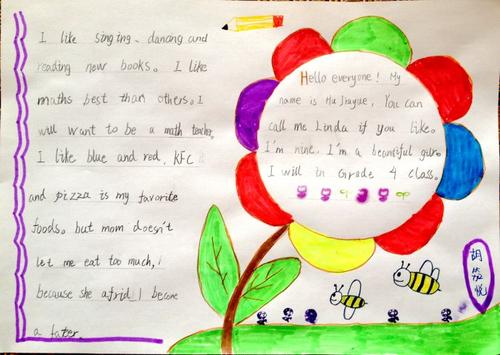 I like singing、dancing and
reading new books。I like
maths best than others。I
will want to be a math teacher。
I like blue and red, KFC
and pizza is my favorite
foods。but mom doesn't
let me eat too much,
because she afrid I become
a fater.
Hello everyone! My
name is Hu Jiayue, You can
call me Linda if you like。
I'm nine, I'm a beautiful girl。
I will in Grade 4 class。
胡
悦